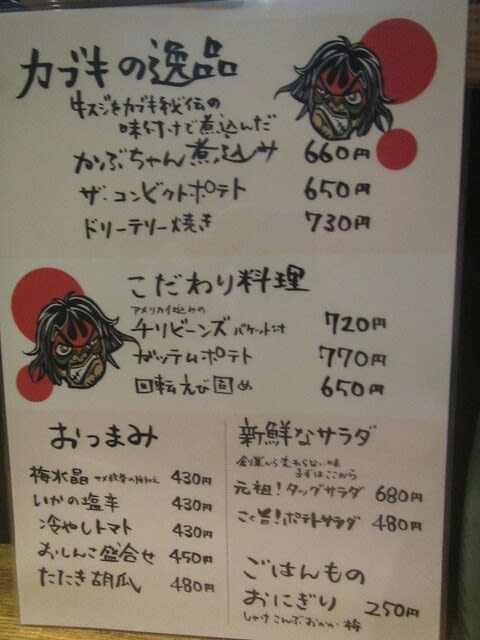 カブキの逸品
牛スジをカブキ秘伝の
味付けで煮込んだ
かぶちゃん煮込み 660円
ザ・コンビクトポテト 650円
ドリーテリー焼き 730円
こだわり料理
アメリカ仕込みの
チリビーンズ バケット付 720円
ガッデムポテト 770円
回転えび固め 650円
おつまみ
梅水晶 サメ軟骨の梅和え 430円
いかの塩辛 430円
冷やしトマト 430円
おしんこ盛合せ 450円
たたき胡瓜 480円
新鮮なサラダ
創業から変わらない味
まずはここから
元祖!タッグサラダ 680円
こく旨!ポテトサラダ 480円
ごはんもの
おにぎり 250円
しゃけ こんぶ おかか 梅